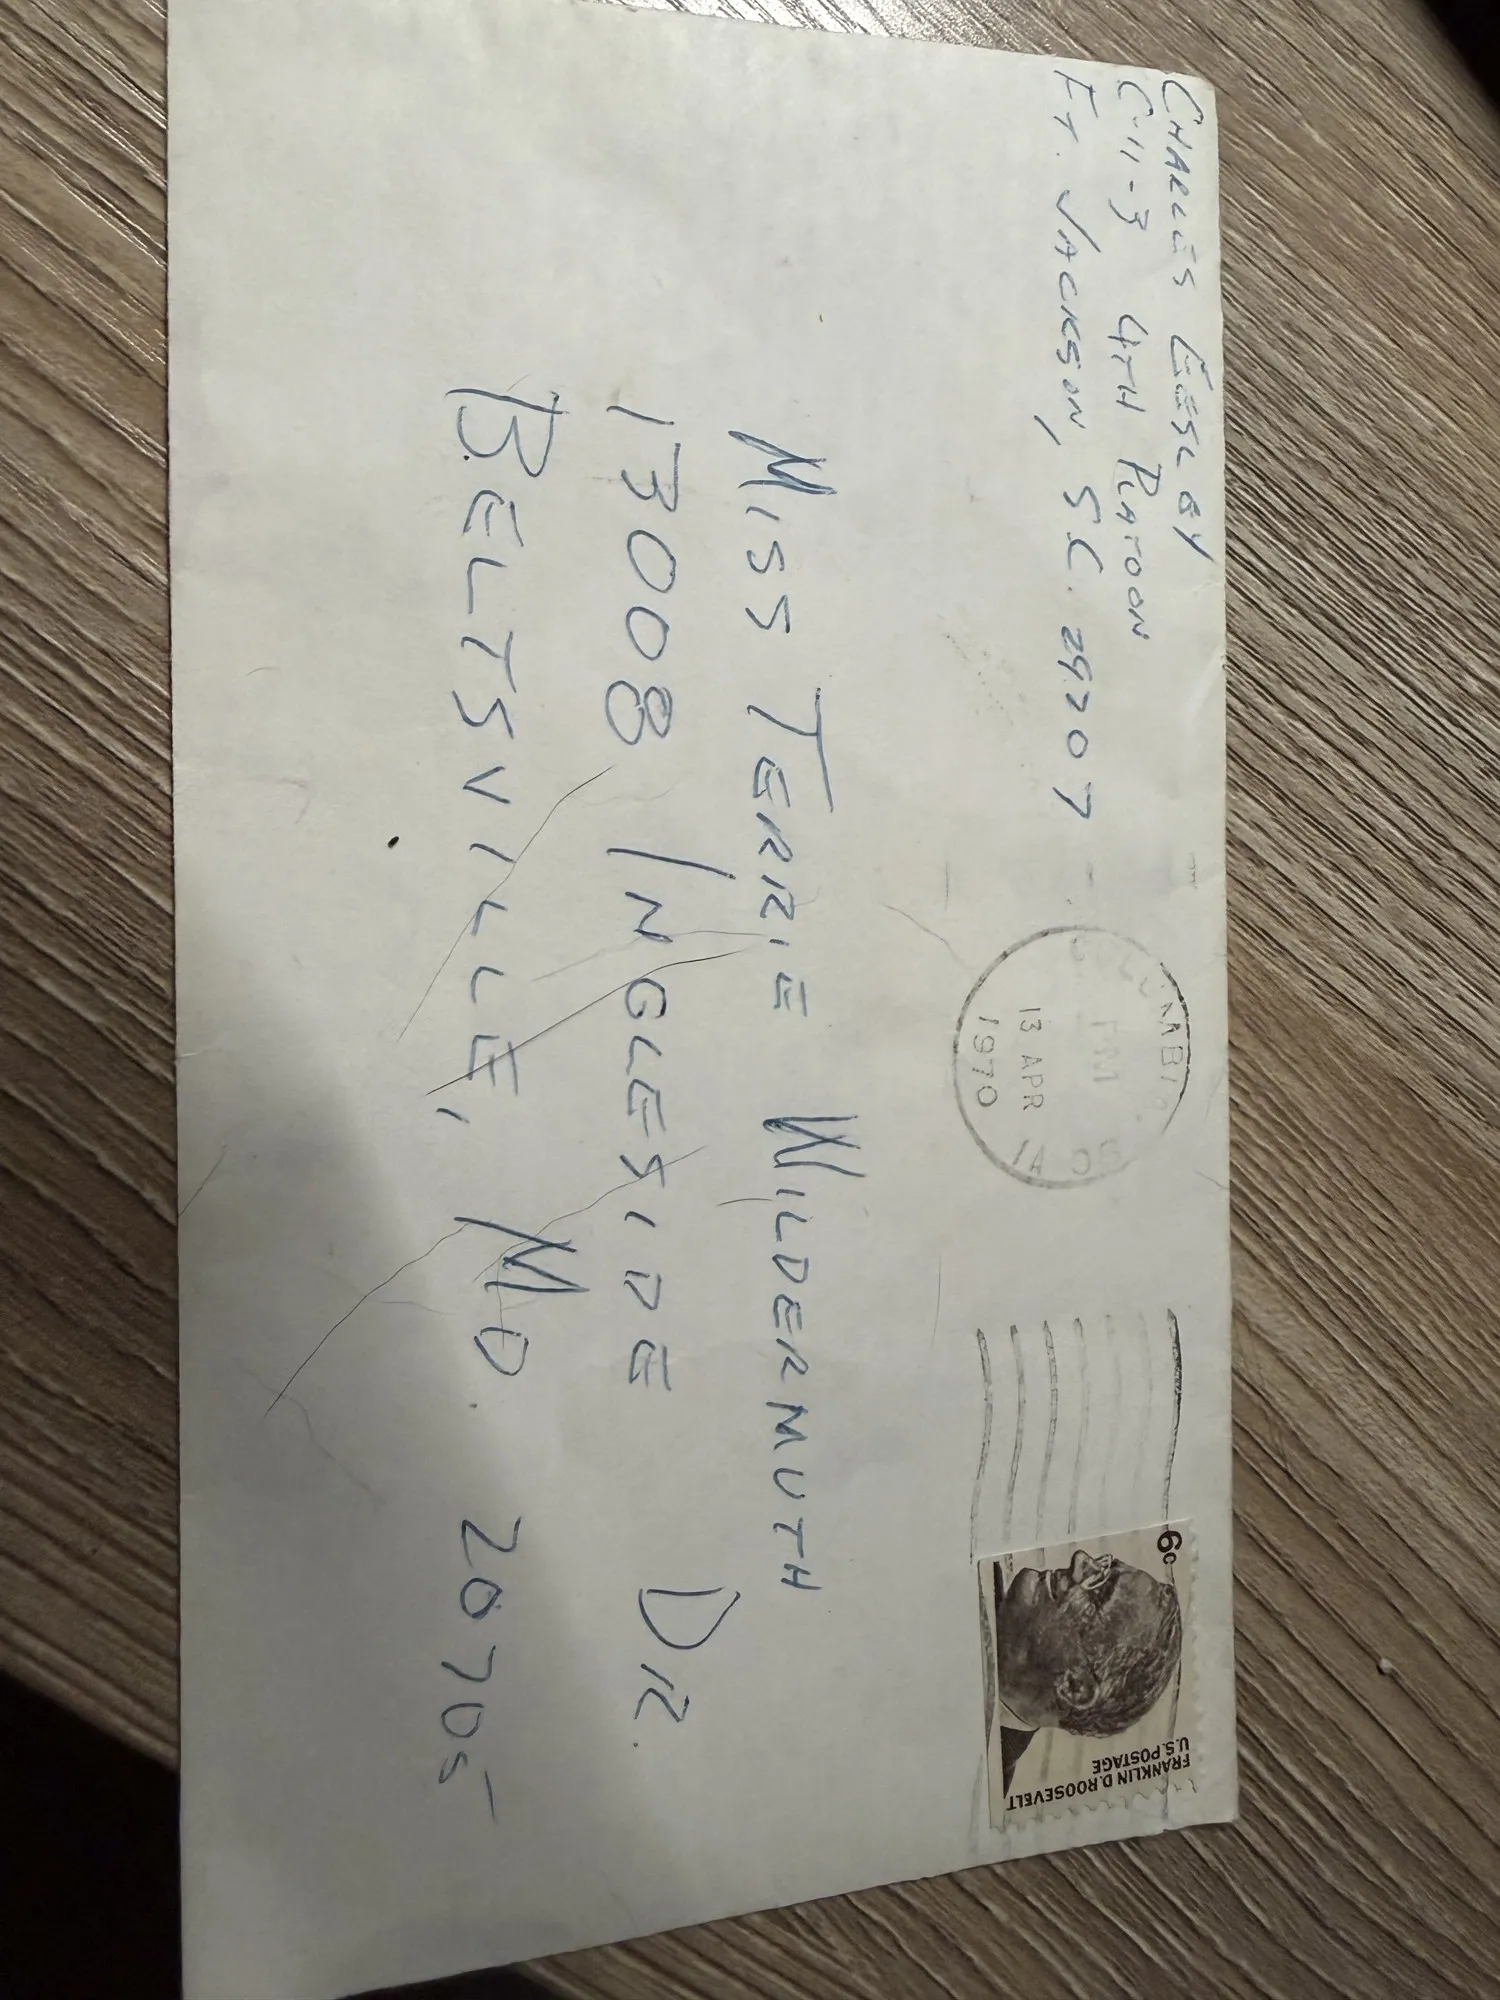 CHARLES
C-11-3 4TH PLATOON
FT. JACKSON, S.C. 29207
PM
13 APR
1970
6c
FRANKLIN D. ROOSEVELT
U.S. POSTAGE
MISS TERRIE WILDERMUTH
13008 INGLESIDE DR.
BELTSVILLE, MD. 20705